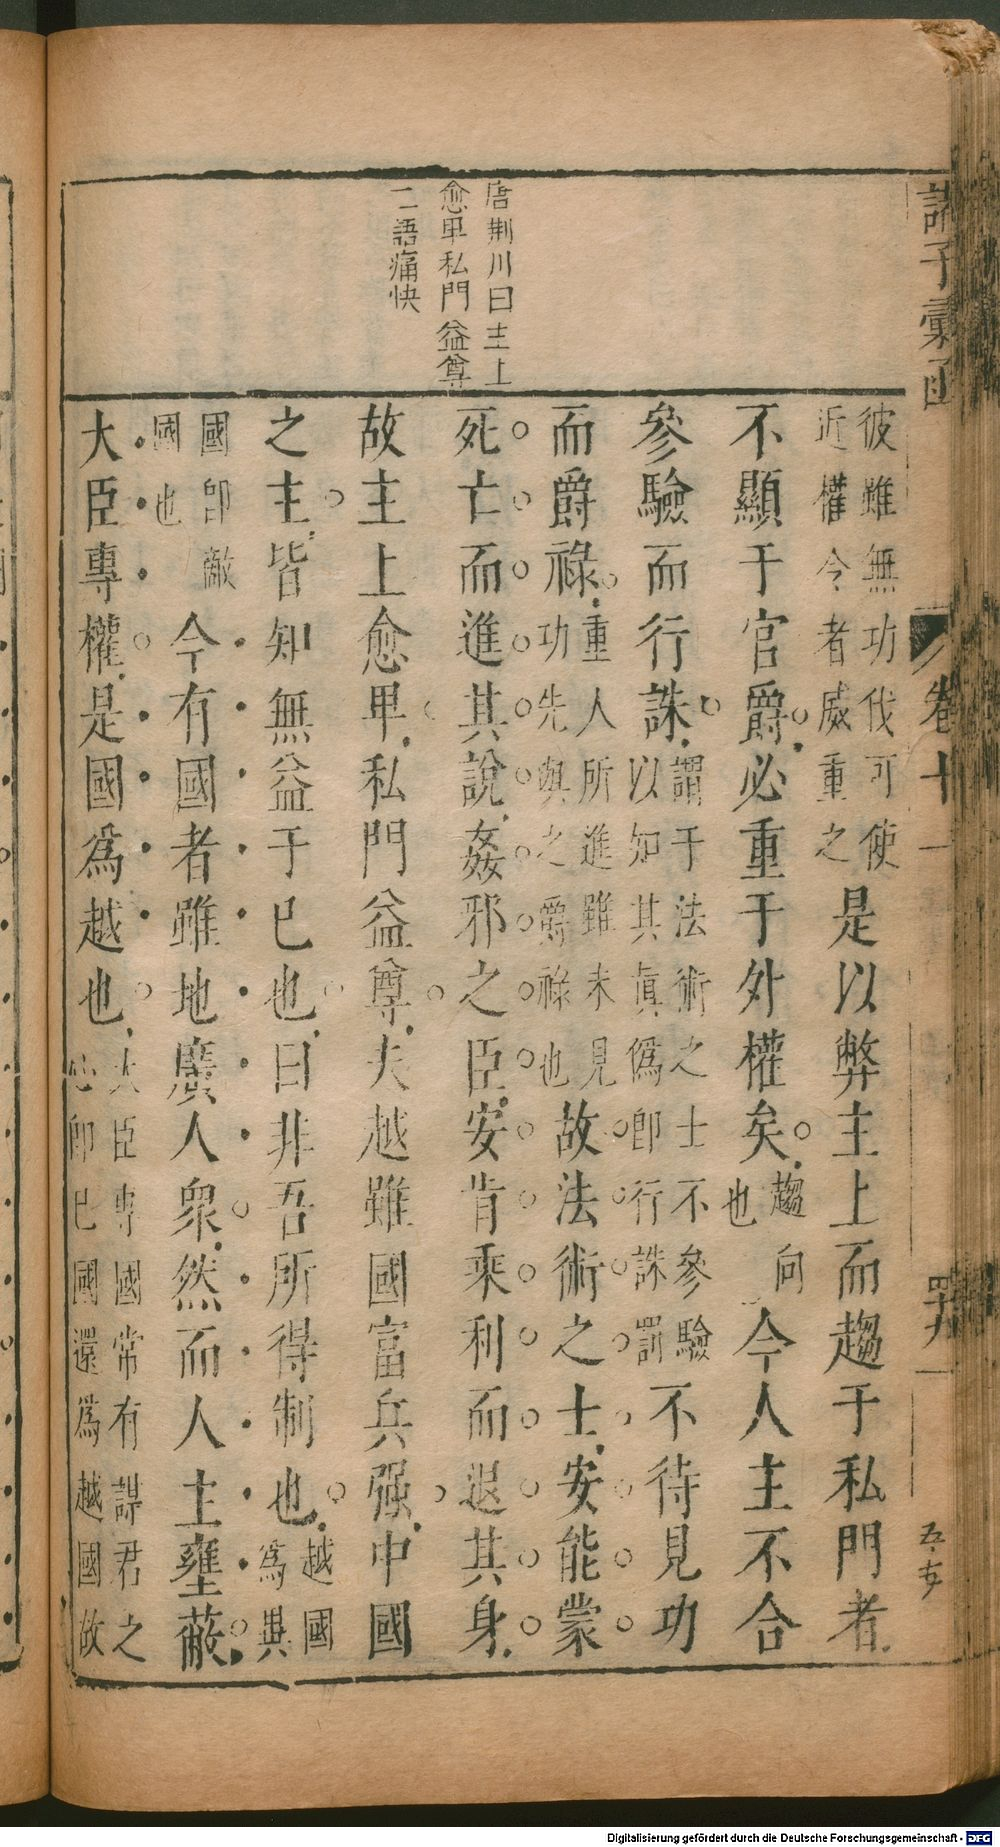 諸子彙函
卷十
五寺
唐荆川曰主上
愈卑私門益尊
二語痛快
彼雖無功伐可使
近權令者威重之
是以弊主上而趨于私門者
不顯于官爵必重于外權矣
趨向
也
今人主不合
參驗而行誅
謂于法術之士不參驗
以知其眞僞即行誅罰
不待見功
而爵祿
重人所進雖未見
功先與之爵祿也
故法術之士安能蒙
死亡而進其說姦邪之臣安肯乘利而退其身
故主上愈卑私門益尊夫越雖國富兵强中國
之主皆知無益于已也曰非吾所得制也
越國
爲異
國即敵
國也
今有國者雖地廣人衆然而人主壅蔽
大臣專權是國爲越也
大臣專國常有謀君之
心即已國還爲越國故
Digitalisierung gefördert durch die Deutsche Forschungsgemeinschaft - DFG